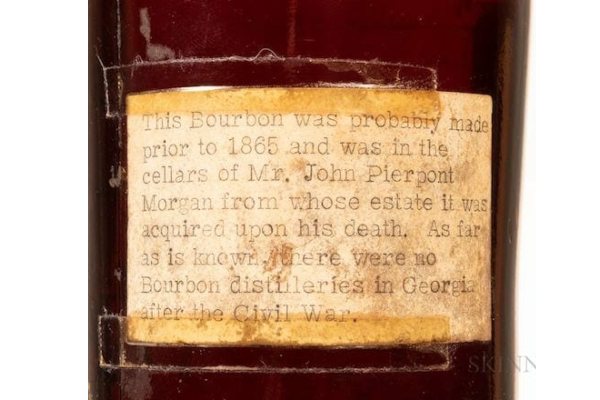 This Bourbon was probably made
prior to 1865 and was in the
cellars of Mr. John Pierpont
Morgan from whose estate it was
acquired upon his death. As far
as is known, there were no
Bourbon distilleries in Georgia
after the Civil War.
SKINN